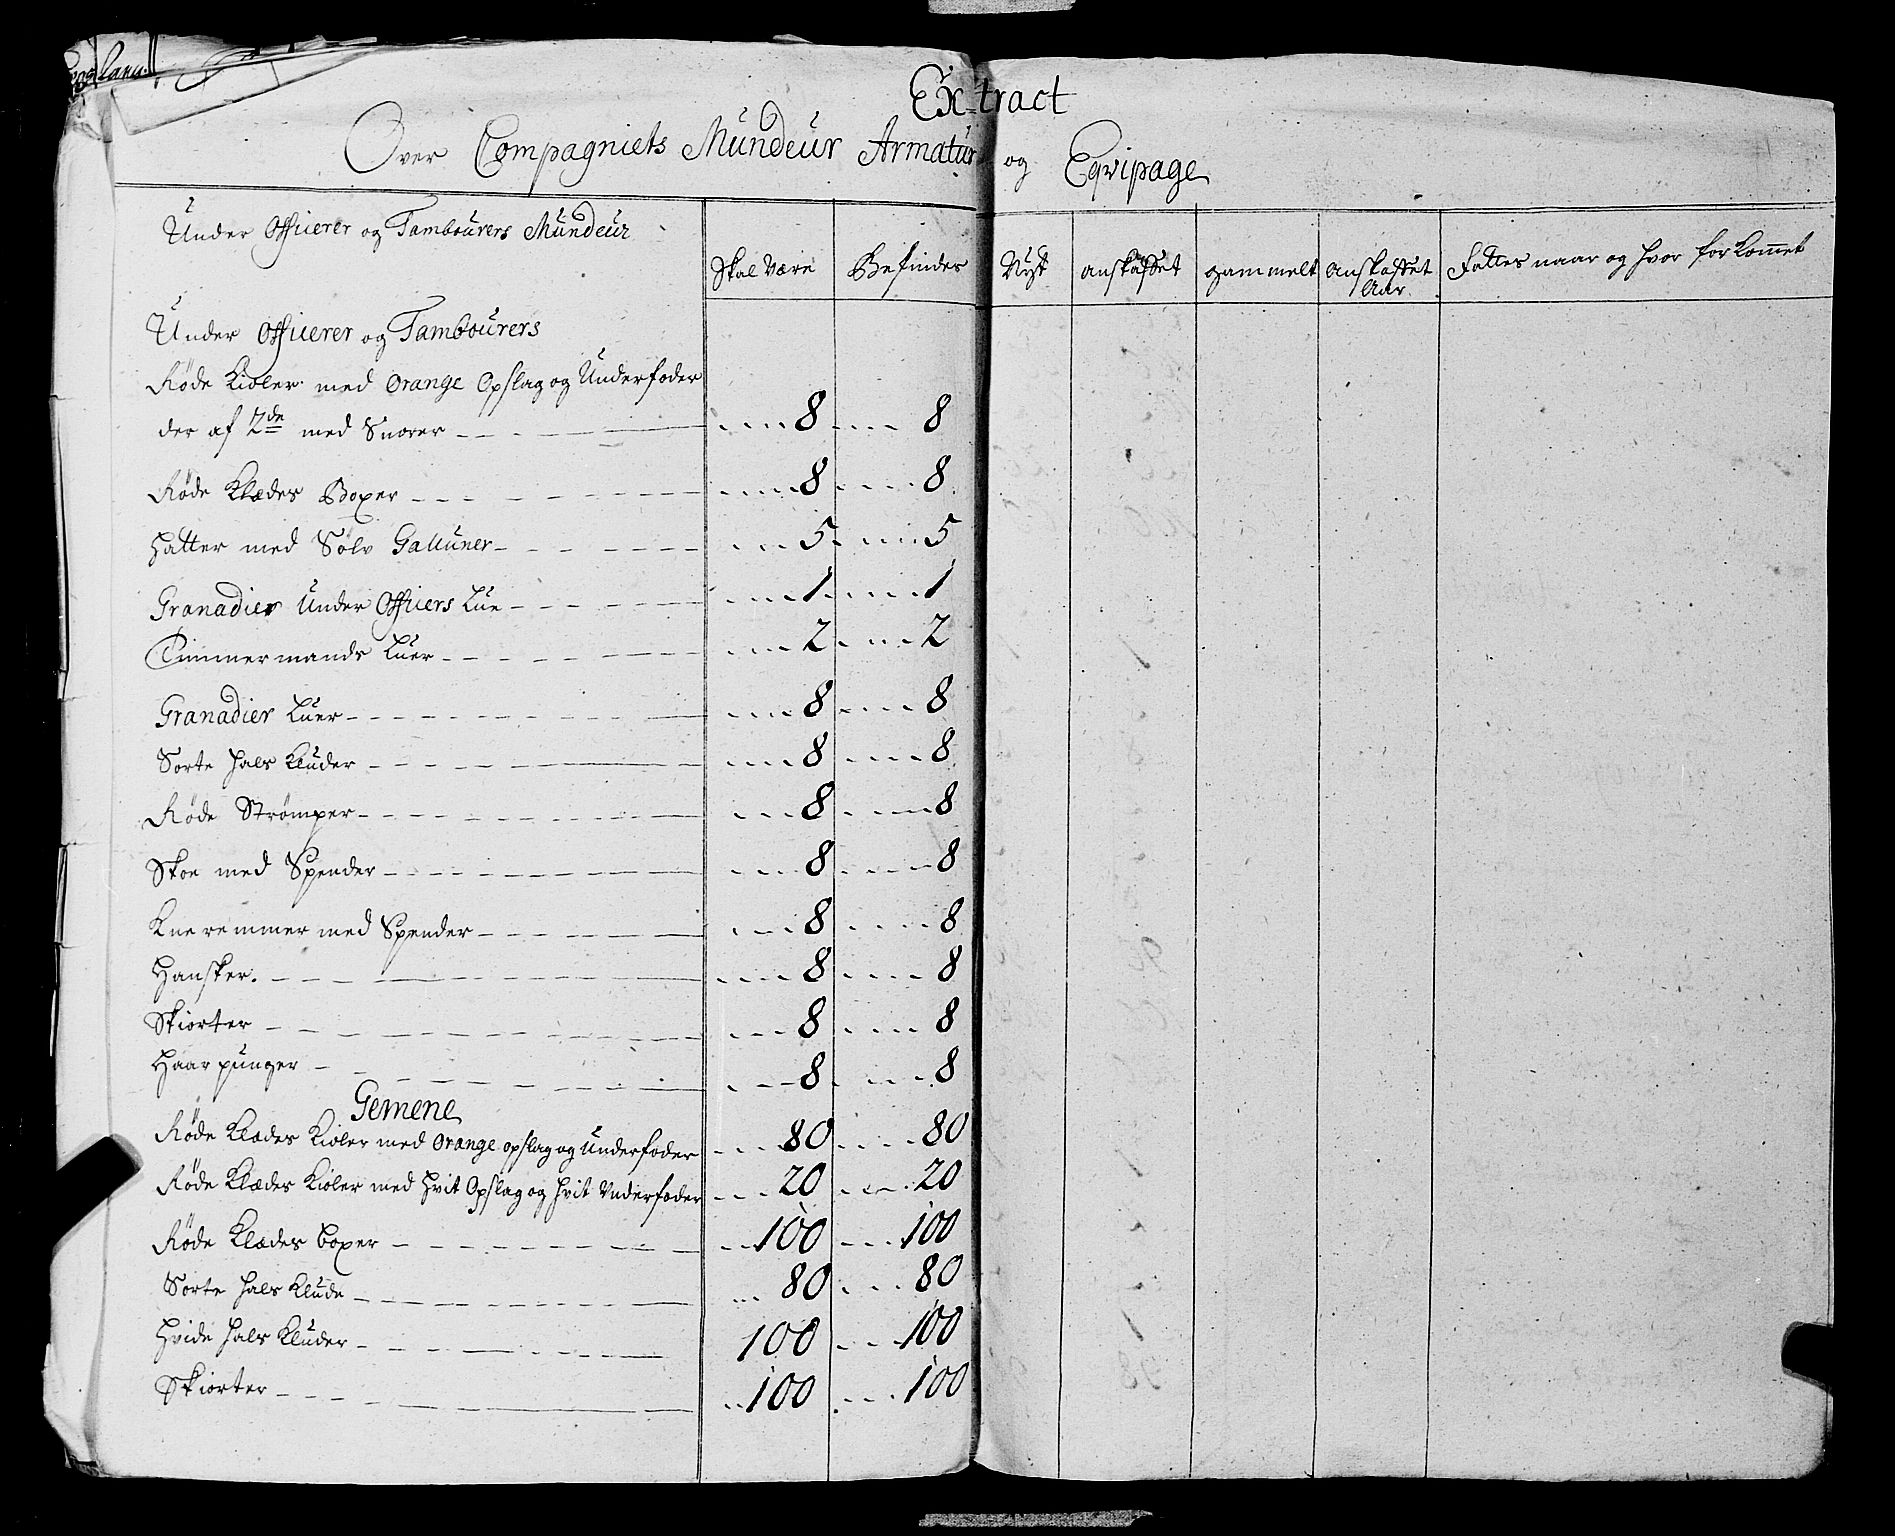 Extract
Over Compagniets Mundeur Armatur og Eqvipage
Under Officerer og Tambourers Mundeur
Skal være Befindes Nyt anskaffet gammelt anskaffet Aar Fattes naar og hvor forkommet
Under Officerer og Tambourers
Røde Kioler med Orange Opslag og Underfoder
der af 2de med Snorer 8 8
Røde Klædes Boxer 8 8
Hatter med Sølv Galluner 5 5
Granadier Under Officers Lue 1 1
Timmermands Luer 2 2
Granadier Luer 8 8
Sorte Hals Kluder 8 8
Røde Strømper 8 8
Skoe med Spender 8 8
Kneremmer med Spender 8 8
Hansker. 8 8
Skiorter 8 8
Haar punger 8 8
Gemene
Røde Klædes Kioler med Orange opslag og Underfoder 80 80
Røde Klædes Kioler med Hvit Opslag og Hvit Underfoder 20 20
Røde Klædes boxer 100 100
Sorte Hals Klude 80 80
Hvide Hals Kluder 100 100
Skiorter 100 100